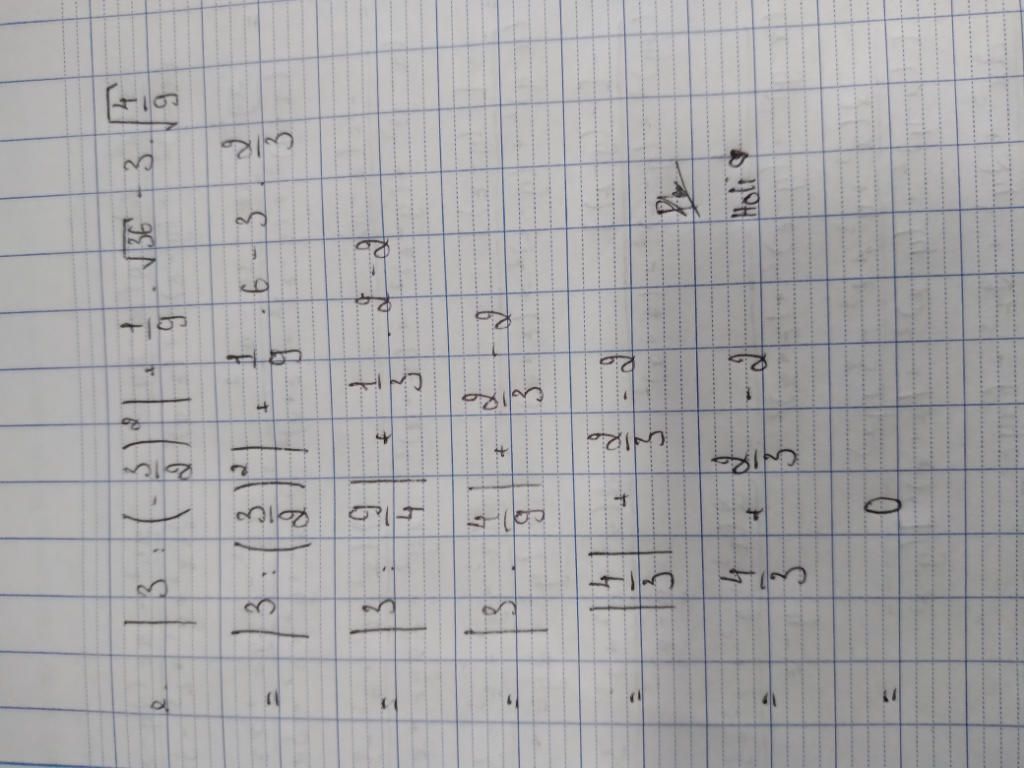 e. |3 : (-3/2)²| + 1/9 . √36 - 3 . √(4/9)
= |3 : (3/2)²| + 1/9 . 6 - 3 . 2/3
= |3 : 9/4| + 1/3 . 2 - 2
= |3 . 4/9| + 2/3 - 2
= |4/3| + 2/3 - 2
= 4/3 + 2/3 - 2
= 0